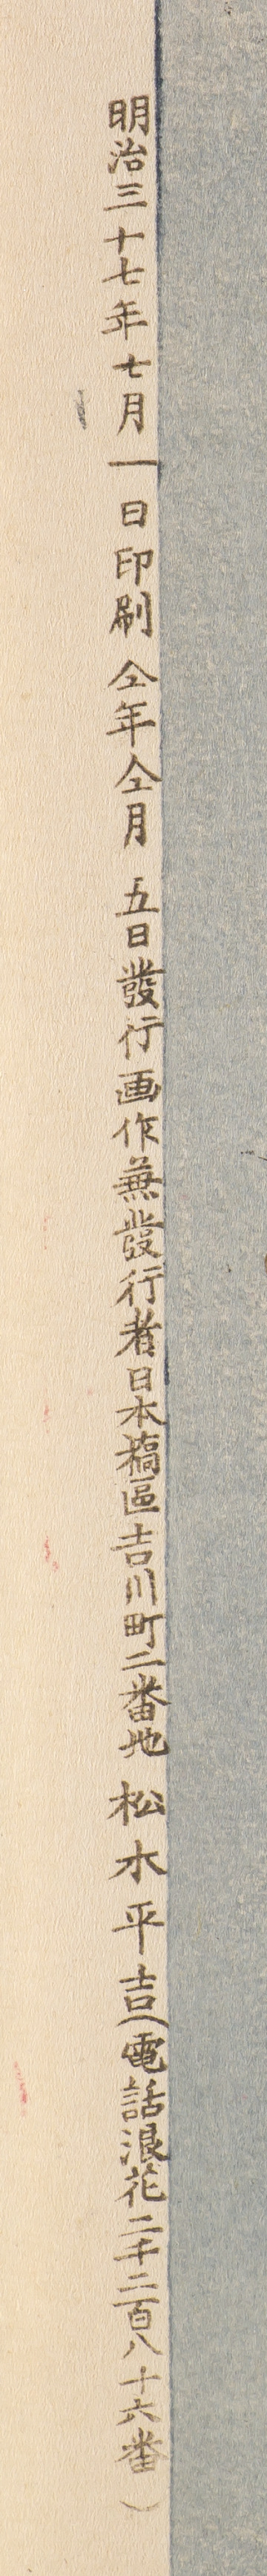 明治三十七年七月一日印刷仝年仝月五日發行画作兼發行者日本橋區吉川町二番地松木平吉(電話浪花二千二百八十六番)